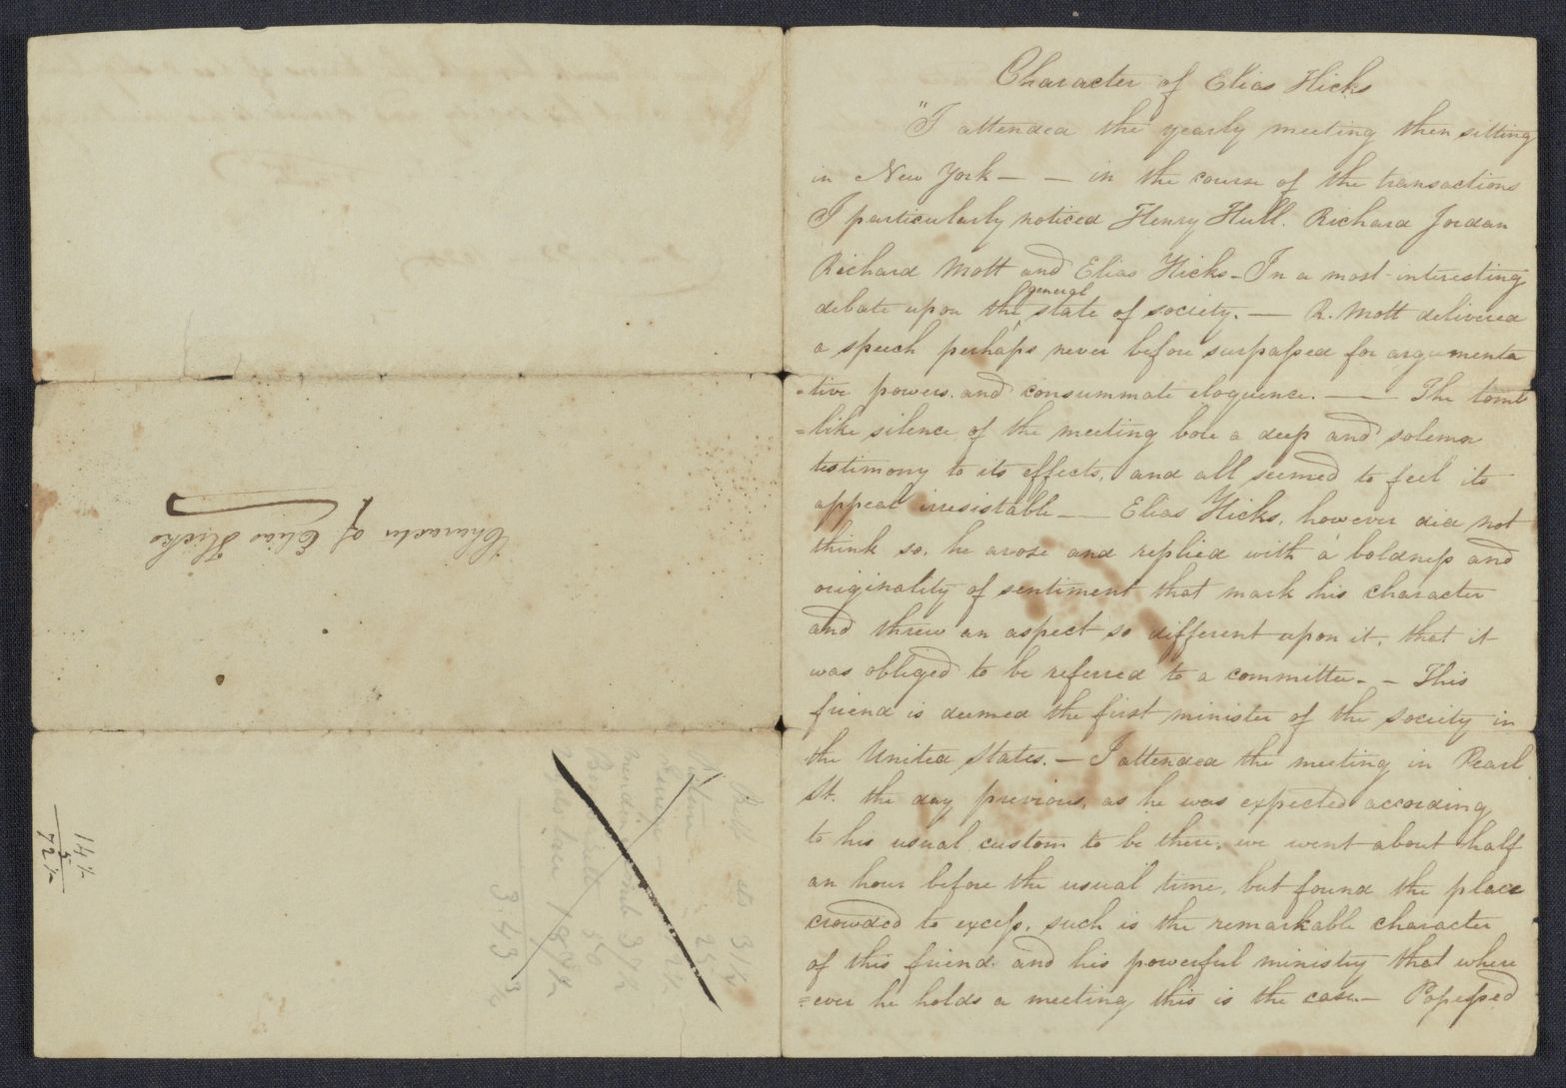 Character of Elias Hicks
"I attended the yearly meeting then sitting
in New York — — in the course of the transactions
I particularly noticed Henry Hull. Richard Jordan
Richard Mott and Elias Hicks - In a most interesting
debate upon the general state of society. — R. Mott delivered
a speech perhaps never before surpassed for argumenta
-tive powers. and consummate eloquence. — — The tomb
=like silence of the meeting bore a deep and solemn
testimony to its effects, and all seemed to feel its
appeal irresistable — Elias Hicks, however did not
think so, he arose and replied with a boldness and
originality of sentiment that mark his character
and threw an aspect so different upon it, that it
was obliged to be referred to a committee. - This
friend is deemed the first minister of the society in
the United States. — I attended the meeting in Pearl
St. the day previous, as he was expected according
to his usual custom to be there, we went about half
an hour before the usual time, but found the place
crowded to excess, such is the remarkable character
of this friend. and his powerful ministry that where
=ever he holds a meeting this is the case. — Possessed
Character of Elias Hicks
14½
5
72½
31½
25
37½
50
3.43